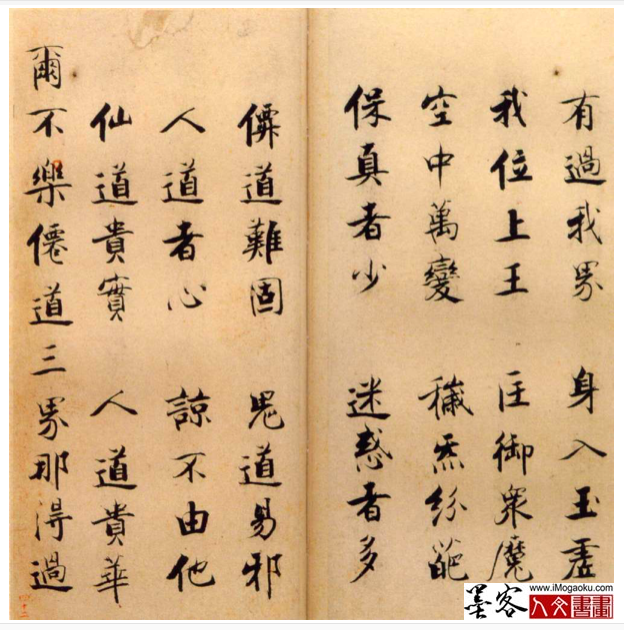 有過我界　身入玉虛
我位上王　匡御衆魔
空中萬變　穢炁紛葩
保真者少　迷惑者多
僊道難固　鬼道易邪
人道者心　諒不由他
仙道貴實　人道貴華
爾不樂僊道三界那得過
墨客
www.iMogaoku.com
人文書畫